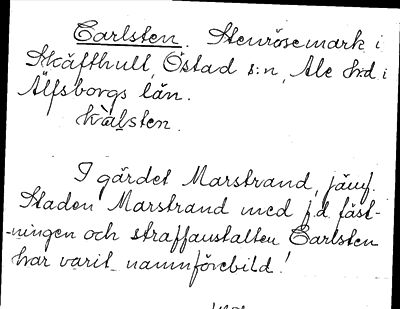 Carlsten. Stenrösemark i
Skäfthull, Östad s:n, Ale h:d i
Älfsborgs län.
kàlsten.
I gärdet Marstrand, jämf.
Staden Marstrand med f.d. fäst-
-ningen och straffanstalten Carlsten
har varit namnförebild!